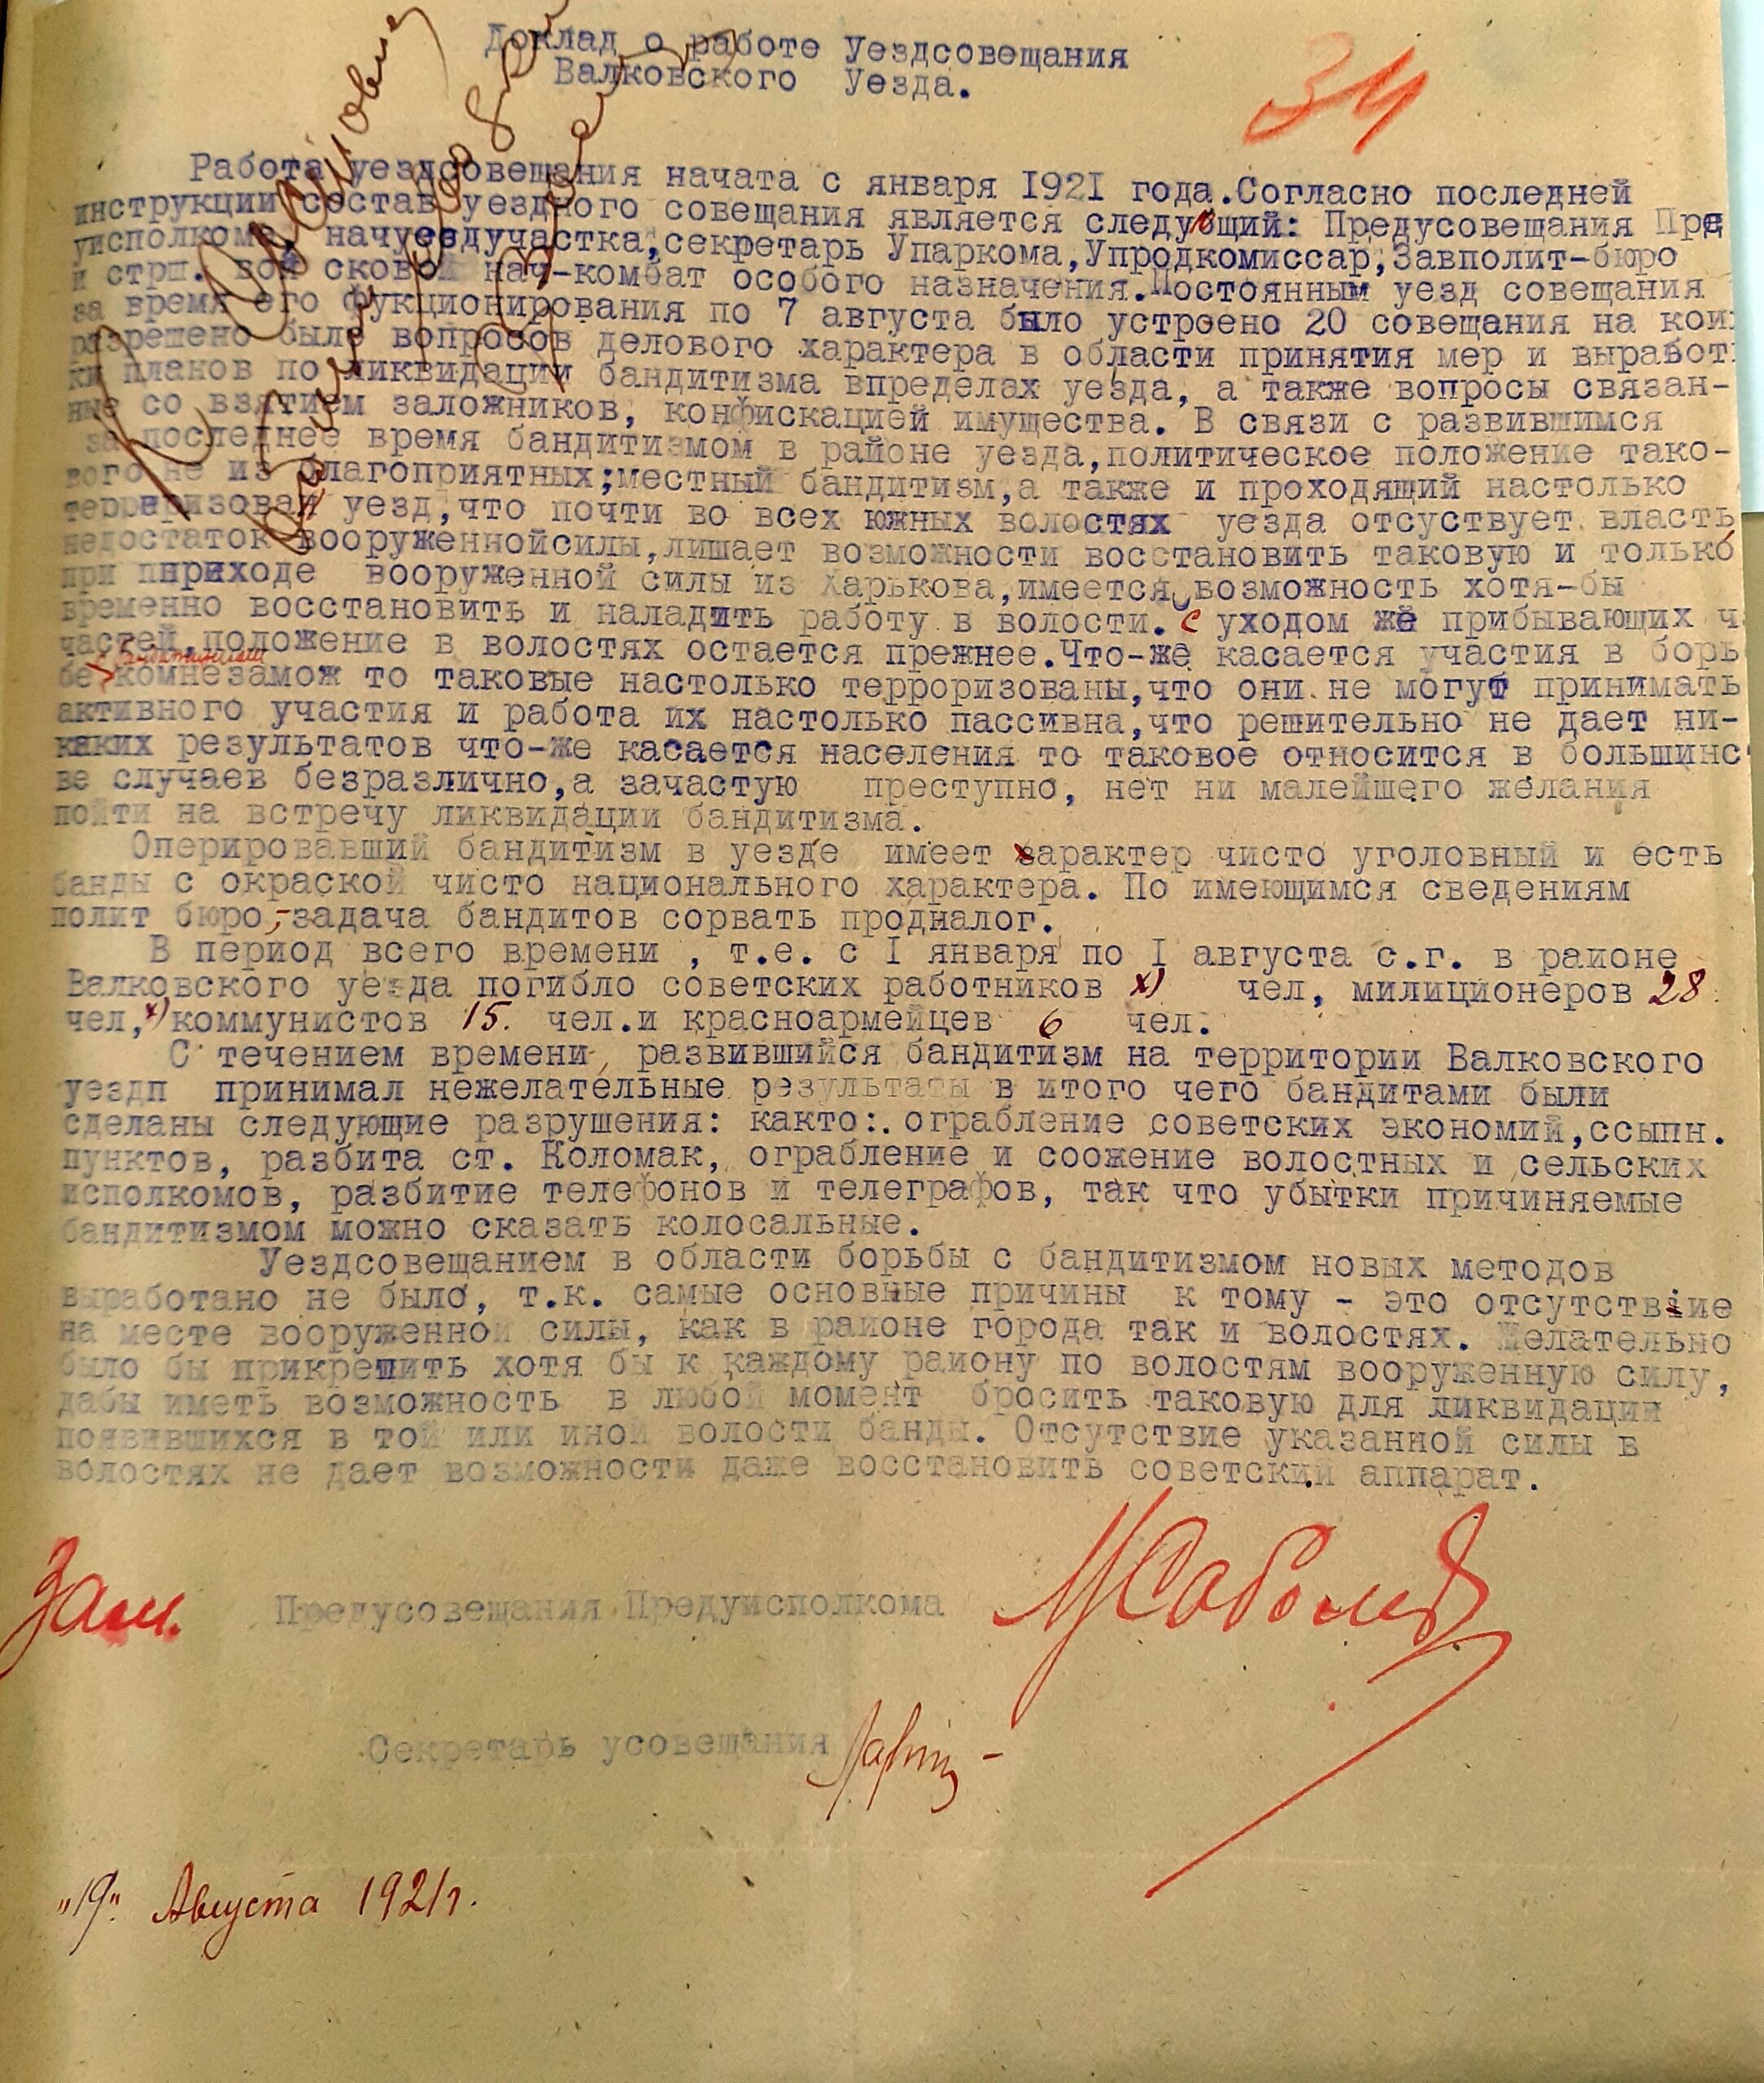 Доклад о работе Уездсовещания
Валковского Уезда.
34
Работа уездсовещания начата с января 1921 года.Согласно последней
инструкции состав уездного совещания является следующий: Предусовещания Пред
уисполкома, начуездучастка,секретарь Упаркома,Упродкомиссар,Завполит-бюро
и нач-комбат особого назначения.Постоянным уезд совещания
за время его фукционирования по 7 августа было устроено 20 совещания на коих
разрешено было вопросов делового характера в области принятия мер и выработ
ки планов по ликвидации бандитизма впределах уезда, а также вопросы связан-
ные со взятием заложников, конфискацией имущества. В связи с развившимся
за последнее время бандитизмом в районе уезда,политическое положение тако-
вого не из благоприятных;местный бандитизм,а также и проходящий настолько
терроризовал уезд,что почти во всех южных волостях уезда отсуствует власть
недостаток вооруженнойсилы,лишает возможности восстановить таковую и только
при приходе вооруженной силы из Харькова,имеется возможность хотя-бы
временно восстановить и наладить работу в волости. С уходом же прибывающих ч
частей,положение в волостях остается прежнее.Что-же касается участия в борь
бе с бандитизмом комнезамож то таковые настолько терроризованы,что они не могут принимать
активного участия и работа их настолько пассивна,что решительно не дает ни-
каких результатов что-же касается населения то таковое относится в большинст
ве случаев безразлично,а зачастую преступно, нет ни малейшего желания
пойти на встречу ликвидации бандитизма.
Оперировавший бандитизм в уезде имеет характер чисто уголовный и есть
банды с окраской чисто национального характера. По имеющимся сведениям
полит бюро,-задача бандитов сорвать продналог.
В период всего времени , т.е. с I января по I августа с.г. в районе
Валковского уезда погибло советских работников х) чел, милиционеров 28
чел,х) коммунистов 15. чел.и красноармейцев 6 чел.
С течением времени, развившийся бандитизм на территории Валковского
уездп принимал нежелательные результаты в итого чего бандитами были
сделаны следующие разрушения: както:. ограбление советских экономий,ссыпн.
пунктов, разбита ст. Коломак, ограбление и соожение волостных и сельских
исполкомов, разбитие телефонов и телеграфов, так что убытки причиняемые
бандитизмом можно сказать колосальные.
Уездсовещанием в области борьбы с бандитизмом новых методов
выработано не было, т.к. самые основные причины к тому - это отсутствие
на месте вооруженной силы, как в районе города так и волостях. Желательно
было бы прикрепить хотя бы к каждому району по волостям вооруженную силу,
дабы иметь возможность в любой момент бросить таковую для ликвидации
появившихся в той или иной волости банды. Отсутствие указанной силы в
волостях не дает возможности даже восстановить советский аппарат.
Зам. Предусовещания Предуисполкома МСоболев
Секретарь усовещания
"19" Августа 1921г.